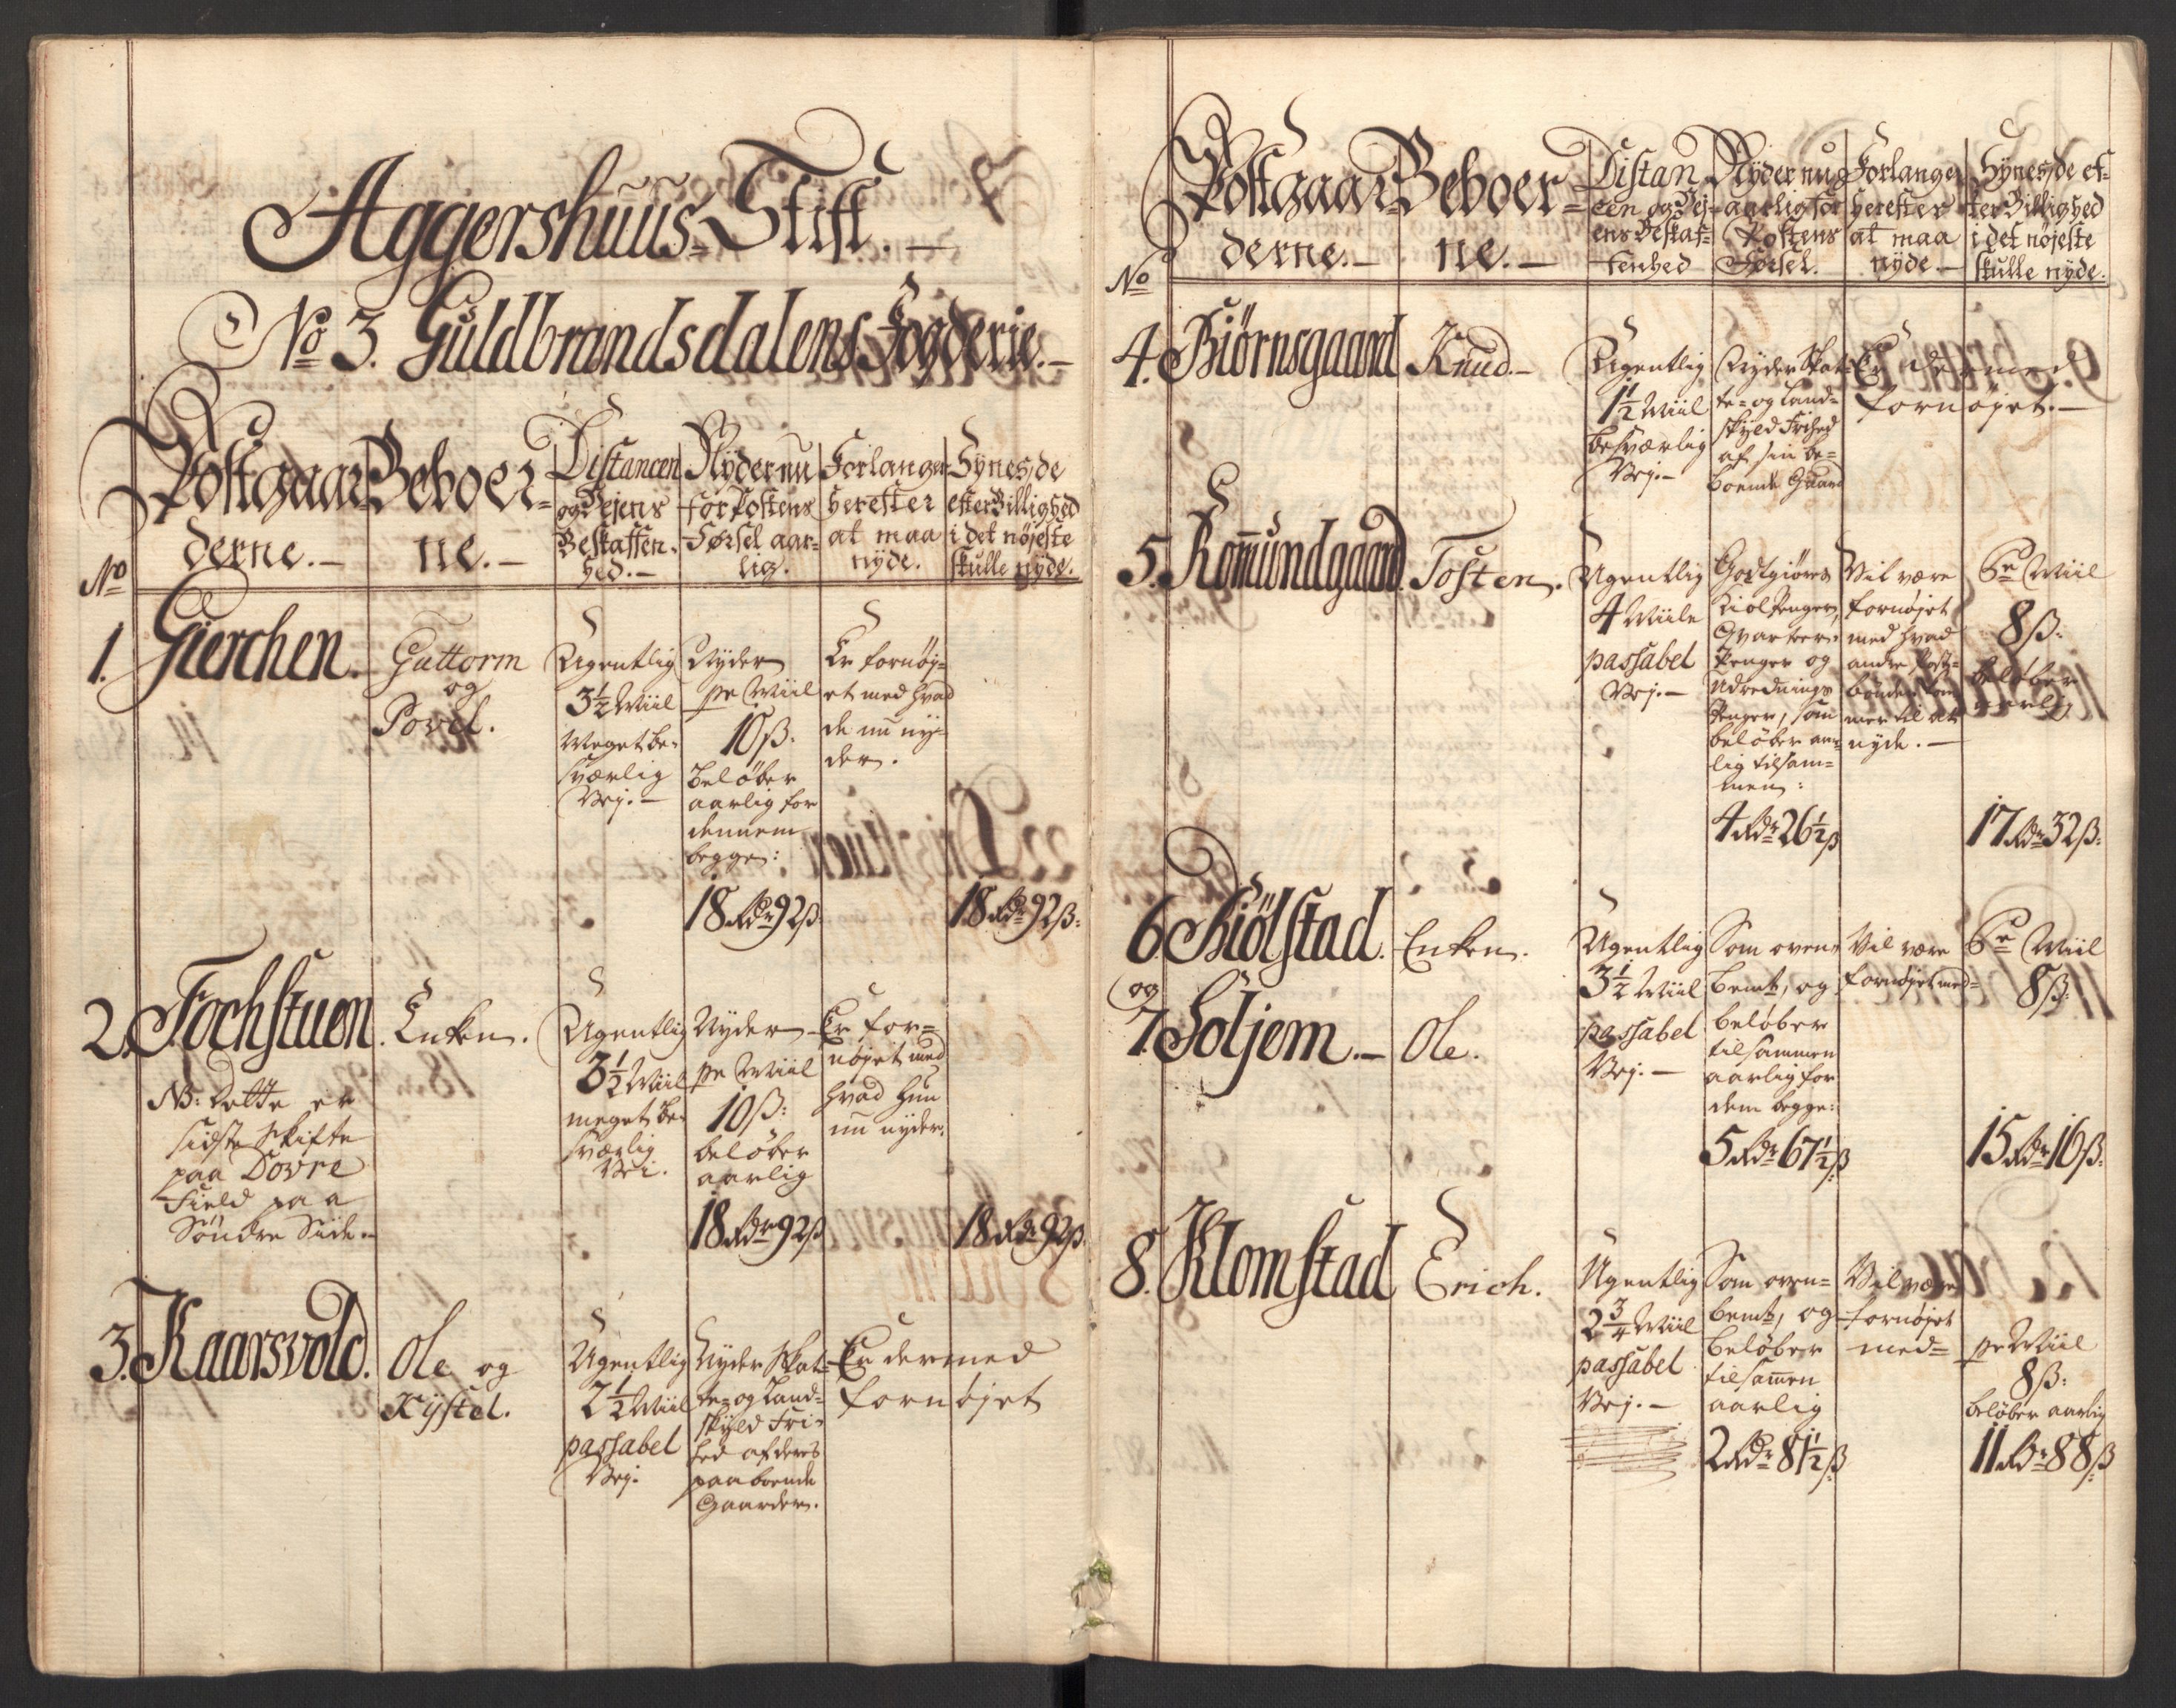 Aggershuus-Stift.-
No 3. Guldbrandsdalens Fogderie.-
No
Postgaar-
derne.-
Beboer-
ne.-
Distancen
og Vejens
Beskaffen-
hed.-
Nyder nu
for Postens
Førsel aar-
lig.
Forlanger
herefter
at maa
nyde.
Synes, de
efter Billighed
i det nøjeste
skulle nyde.
1. Gierchen.
Guttorm
og
Povel.
Ugentlig
3½ Miil
Meget be-
sværlig
Vej.-
Nyder
pr Miil
10 ß.
beløber
aarlig for
dennem
begge:
18 Rdr 92 ß
Er fornøy-
et med hvad
de nu ny-
der.
18 Rdr 92 ß:
2. Fochstuen.
NB: Dette er
sidste Skifte
paa Dovre
Field paa
Søndre Side.-
Enken.
Ugentlig
3½ Miil
meget be-
sværlig
Vei.
Nyder
pr Miil
10 ß:
beløber
aarlig
18 Rdr 92 ß
Er for-
nøjet med
hvad hun
nu nyder.
18 Rdr 92 ß.
3. Kaarsvold.
Ole og
Kystel.
Ugentlig
2½ Miil
passabel
Vej.
Nyder Skat-
te- og Land-
skyld Fri-
hed af deres
paaboende
Gaarder.
Er dermed
fornøjet
No
Postgaar-
derne.-
Beboer-
ne.-
Distan
cen og Vej-
ens Beskaf-
fenhed
Nyder nu
aarlig for
Postens
Førsel.
Forlanger
herefter
at maa
nyde.-
Synes, de ef-
ter Billighed
i det nøjeste
skulle nyde.
4. Biörnsgaard
Knud.-
Ugentlig
1½ Miil
besværlig
Vej.-
Nyder Skat-
te- og Land-
skyld Frihed
af sin be-
boende Gaard
Er dermed
fornøjet.-
5. Romundgaard.
Tosten.
Ugentlig
4 Miile
passabel
Vej.-
Godtgiøres
Qvarteer-
Penger og
Udrednings
Penger, som
beløber aar-
lig tilsam-
men:
4 Rdr 26½ ß
Vil være
fornøjet
med hvad
andre Post-
bønder kom-
mer til at
nyde.-
Pr Miil
8 ß.
beløber
aarlig
17 Rdr 32 ß.
6. Biølstad.
og
7. Soljem.-
Enken.
Ole.
Ugentlig
3½ Miil
passabel
Vej.-
Som oven-
bemt, og
beløber
tilsammen
aarlig for
dem begge:
5 Rdr 67½ ß
Vil være
fornøjet med-
Pr Miil
8 ß:
15 Rdr 16 ß.
8. Klomstad
Erich.
Ugentlig
2¾ Miil
passabel
Vej.-
Som oven-
bemt, og
beløber
tilsamen
aarlig
2 Rdr 81½ ß
Vil være
fornøjet
med-
pr Miil
8 ß:
beløber aarlig
11 Rdr 88 ß